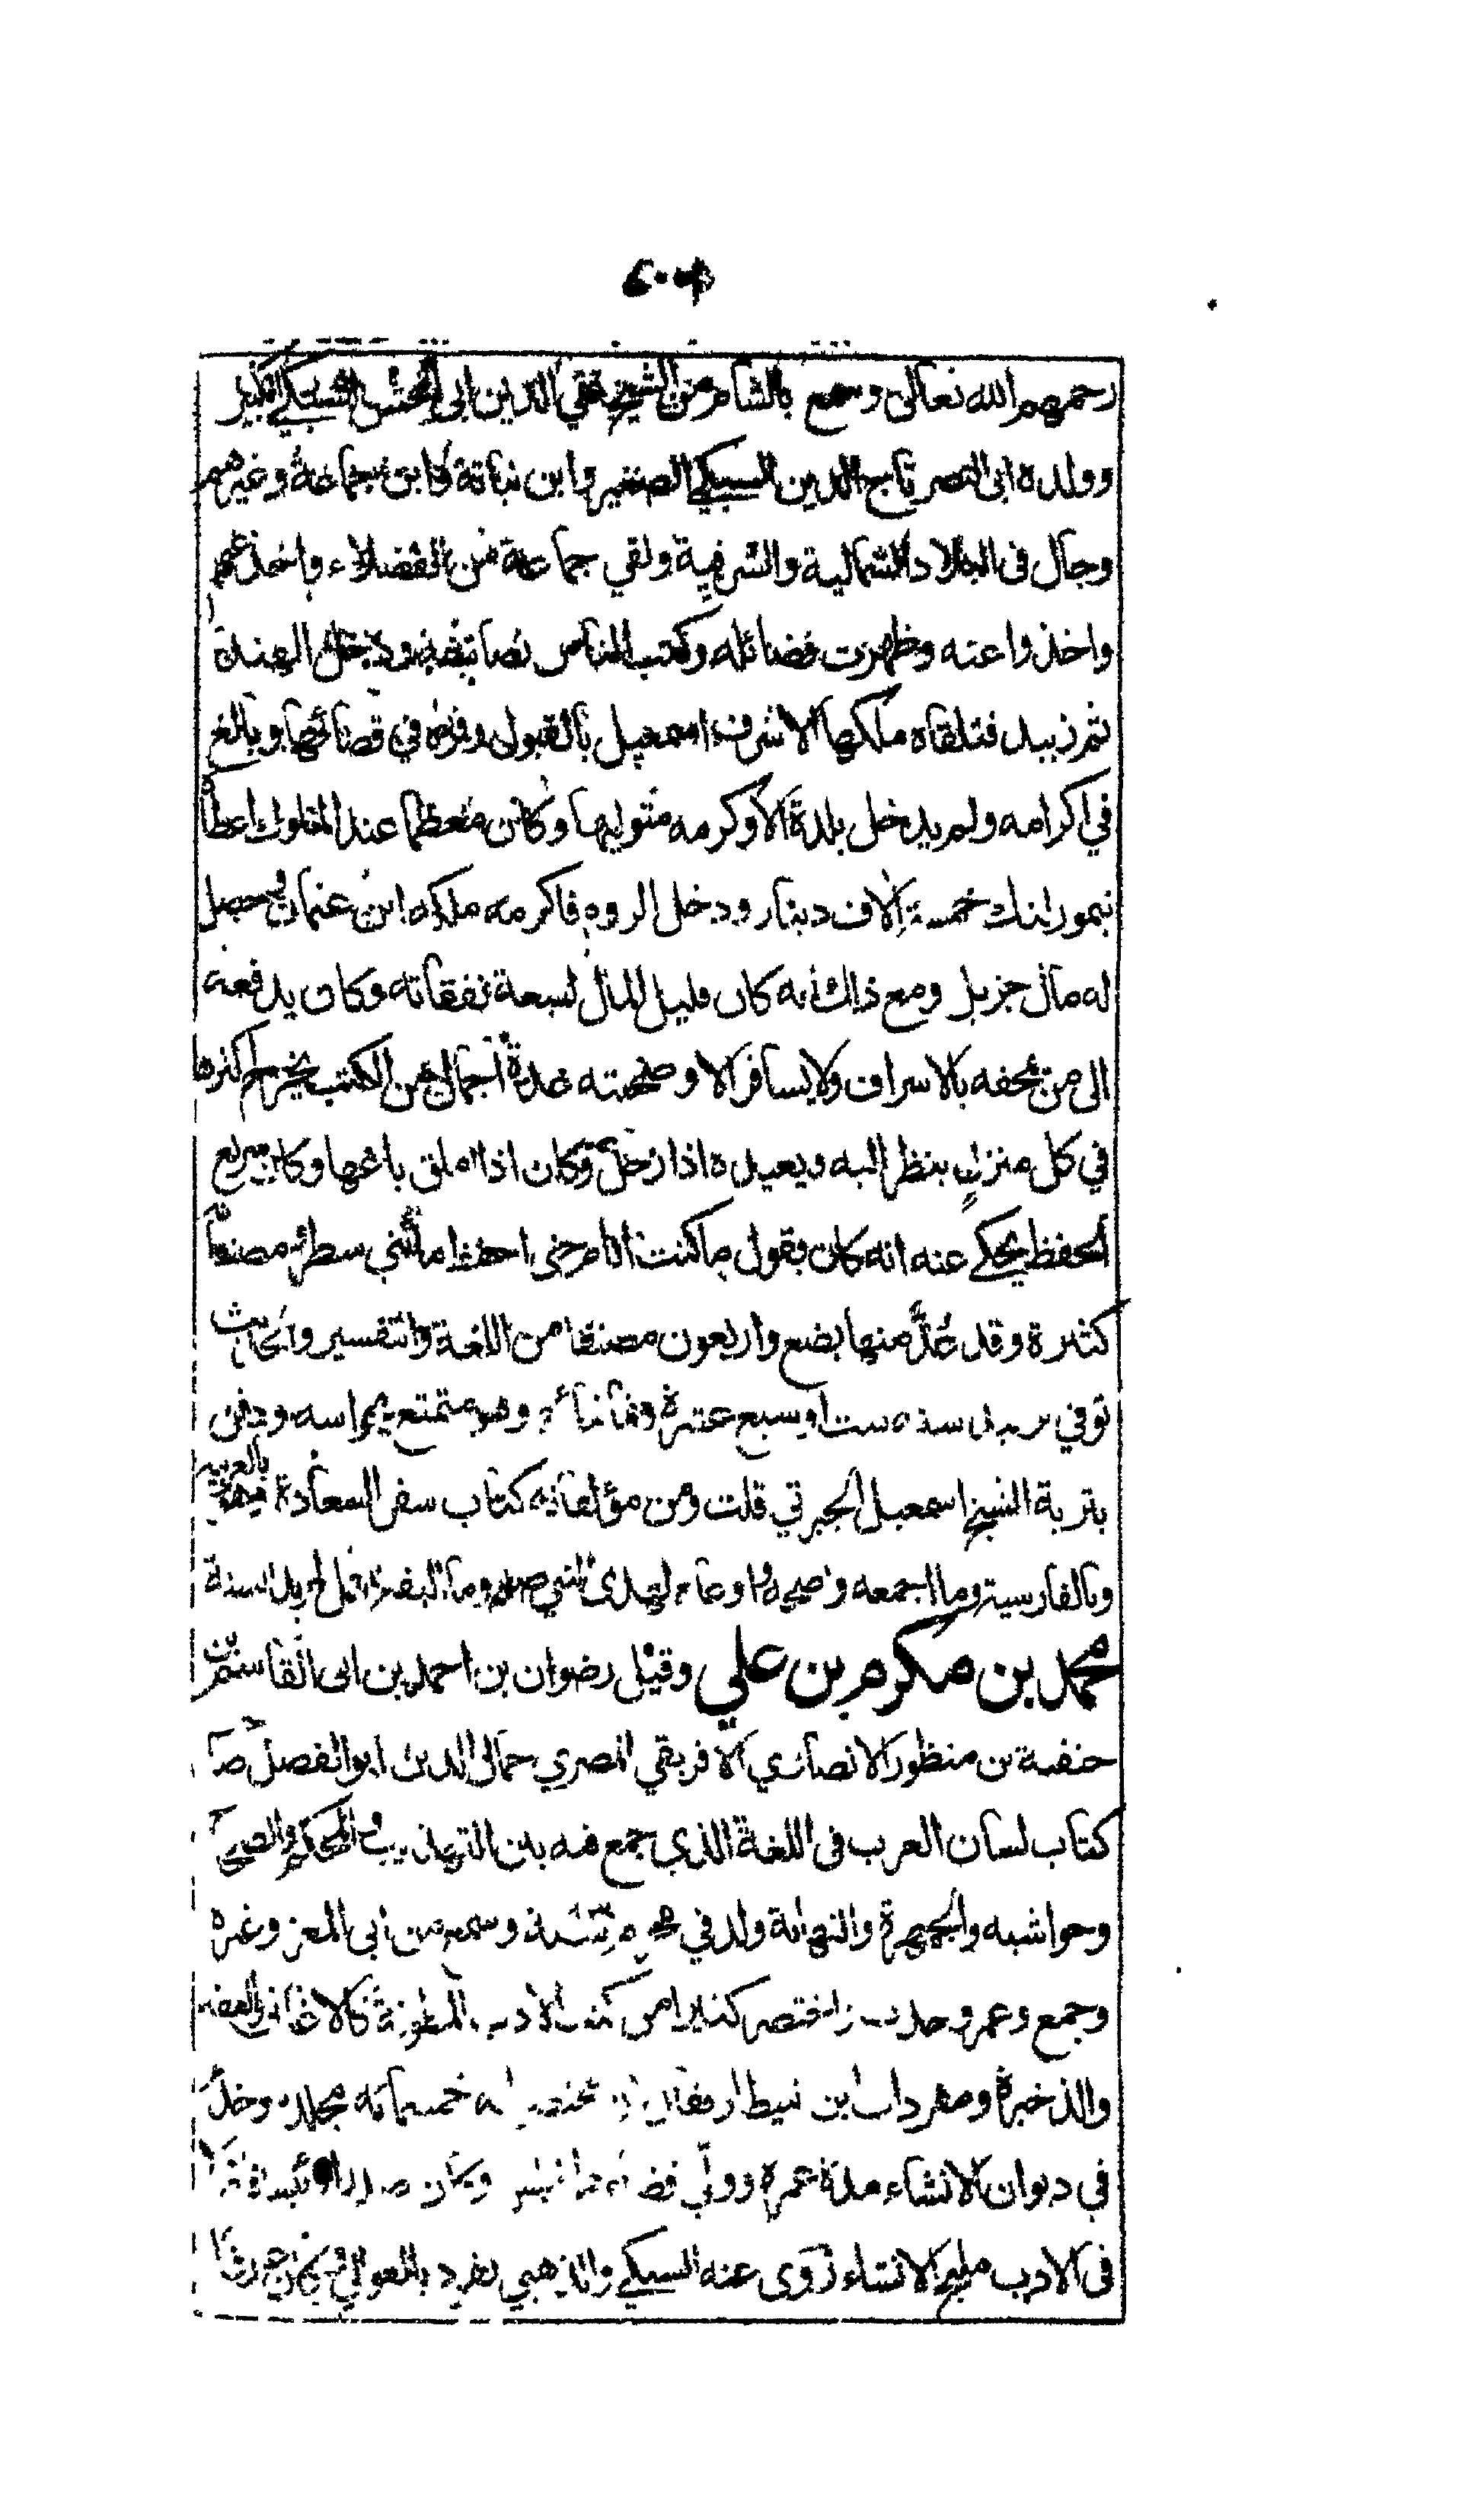 رحمهم الله تعالى وسمع بالشام من الشيخ تقي الدين ابي الحسن السبكي الكبير
وولده ابى النصر تاج الدين السبكي الصغير وابن نباتة وابن جماعة وغيرهم
وجال فى البلاد الشمالية والشرقية ولقي جماعة من الفضلاء واخذ عنهم
واخذوا عنه وظهرت فضائله وكتب الناس تصانيفه ودخل الهند
ثم زبيد فتلقاه ملكها الاشرف اسمعيل بالقبول وقرره في قضائها وبالغ
في اكرامه ولم يدخل بلدة الا وكرمه متوليها وكان معظما عند الملوك اعطاه
تيمور لنك خمسة الاف دينار ودخل الروم فاكرمه ملكه ابن عثمان وحصل
له مال جزيل ومع ذلك انه كان قليل المال لسعة نفقاته وكان يدفعه
الى من يمحقه بالاسراف ولا يسافر الا وصحبته عدة اجمال من الكتب يخرج اكثرها
في كل منزل ينظر اليه ويعيده اذا رحل وكان اذا املق باعها وكان سريع
الحفظ يحكى عنه انه كان يقول ما كنت انام حتى احفظ مأتي سطر مصنفا
كثيرة وقد عد منها بضع واربعون مصنفا من اللغة والتفسير والحديث
توفي بزبيد سنة ست او سبع عشرة وثمانمائة وهو متمتع بحواسه ودفن
بتربة الشيخ اسمعيل الجبرتي قلت ومن مؤلفاته كتاب سفر السعادة بالعربية
وبالفارسية وما اجمعه واصحه واوعاه لهدى النبي
محمد بن مكرم بن علي وقيل رضوان بن احمد بن ابى القاسم بن
حنفية بن منظور الانصاري الافريقي المصري جمال الدين ابو الفضل صا
كتاب لسان العرب فى اللغة الذي جمع فيه بين التهذيب والمحكم والصحاح
وحواشيه والجمهرة والنهاية ولد في محرم سنة وسمع من ابى المعز وغيره
وجمع وعمر وحدث واختصر كثيرا من كتب الادب المطولة كالاغانى والعقد
والذخيرة ومفردات ابن بيطار يقال ان مختصراته خمسمائة مجلد وخدم
في ديوان الانشاء مدة عمره وولي قضاء طرابلس وكان صدرا رئيسا فاضلا
فى الادب مليح الانشاء روى عنه السبكي والذهبي تفرد بالعوالي